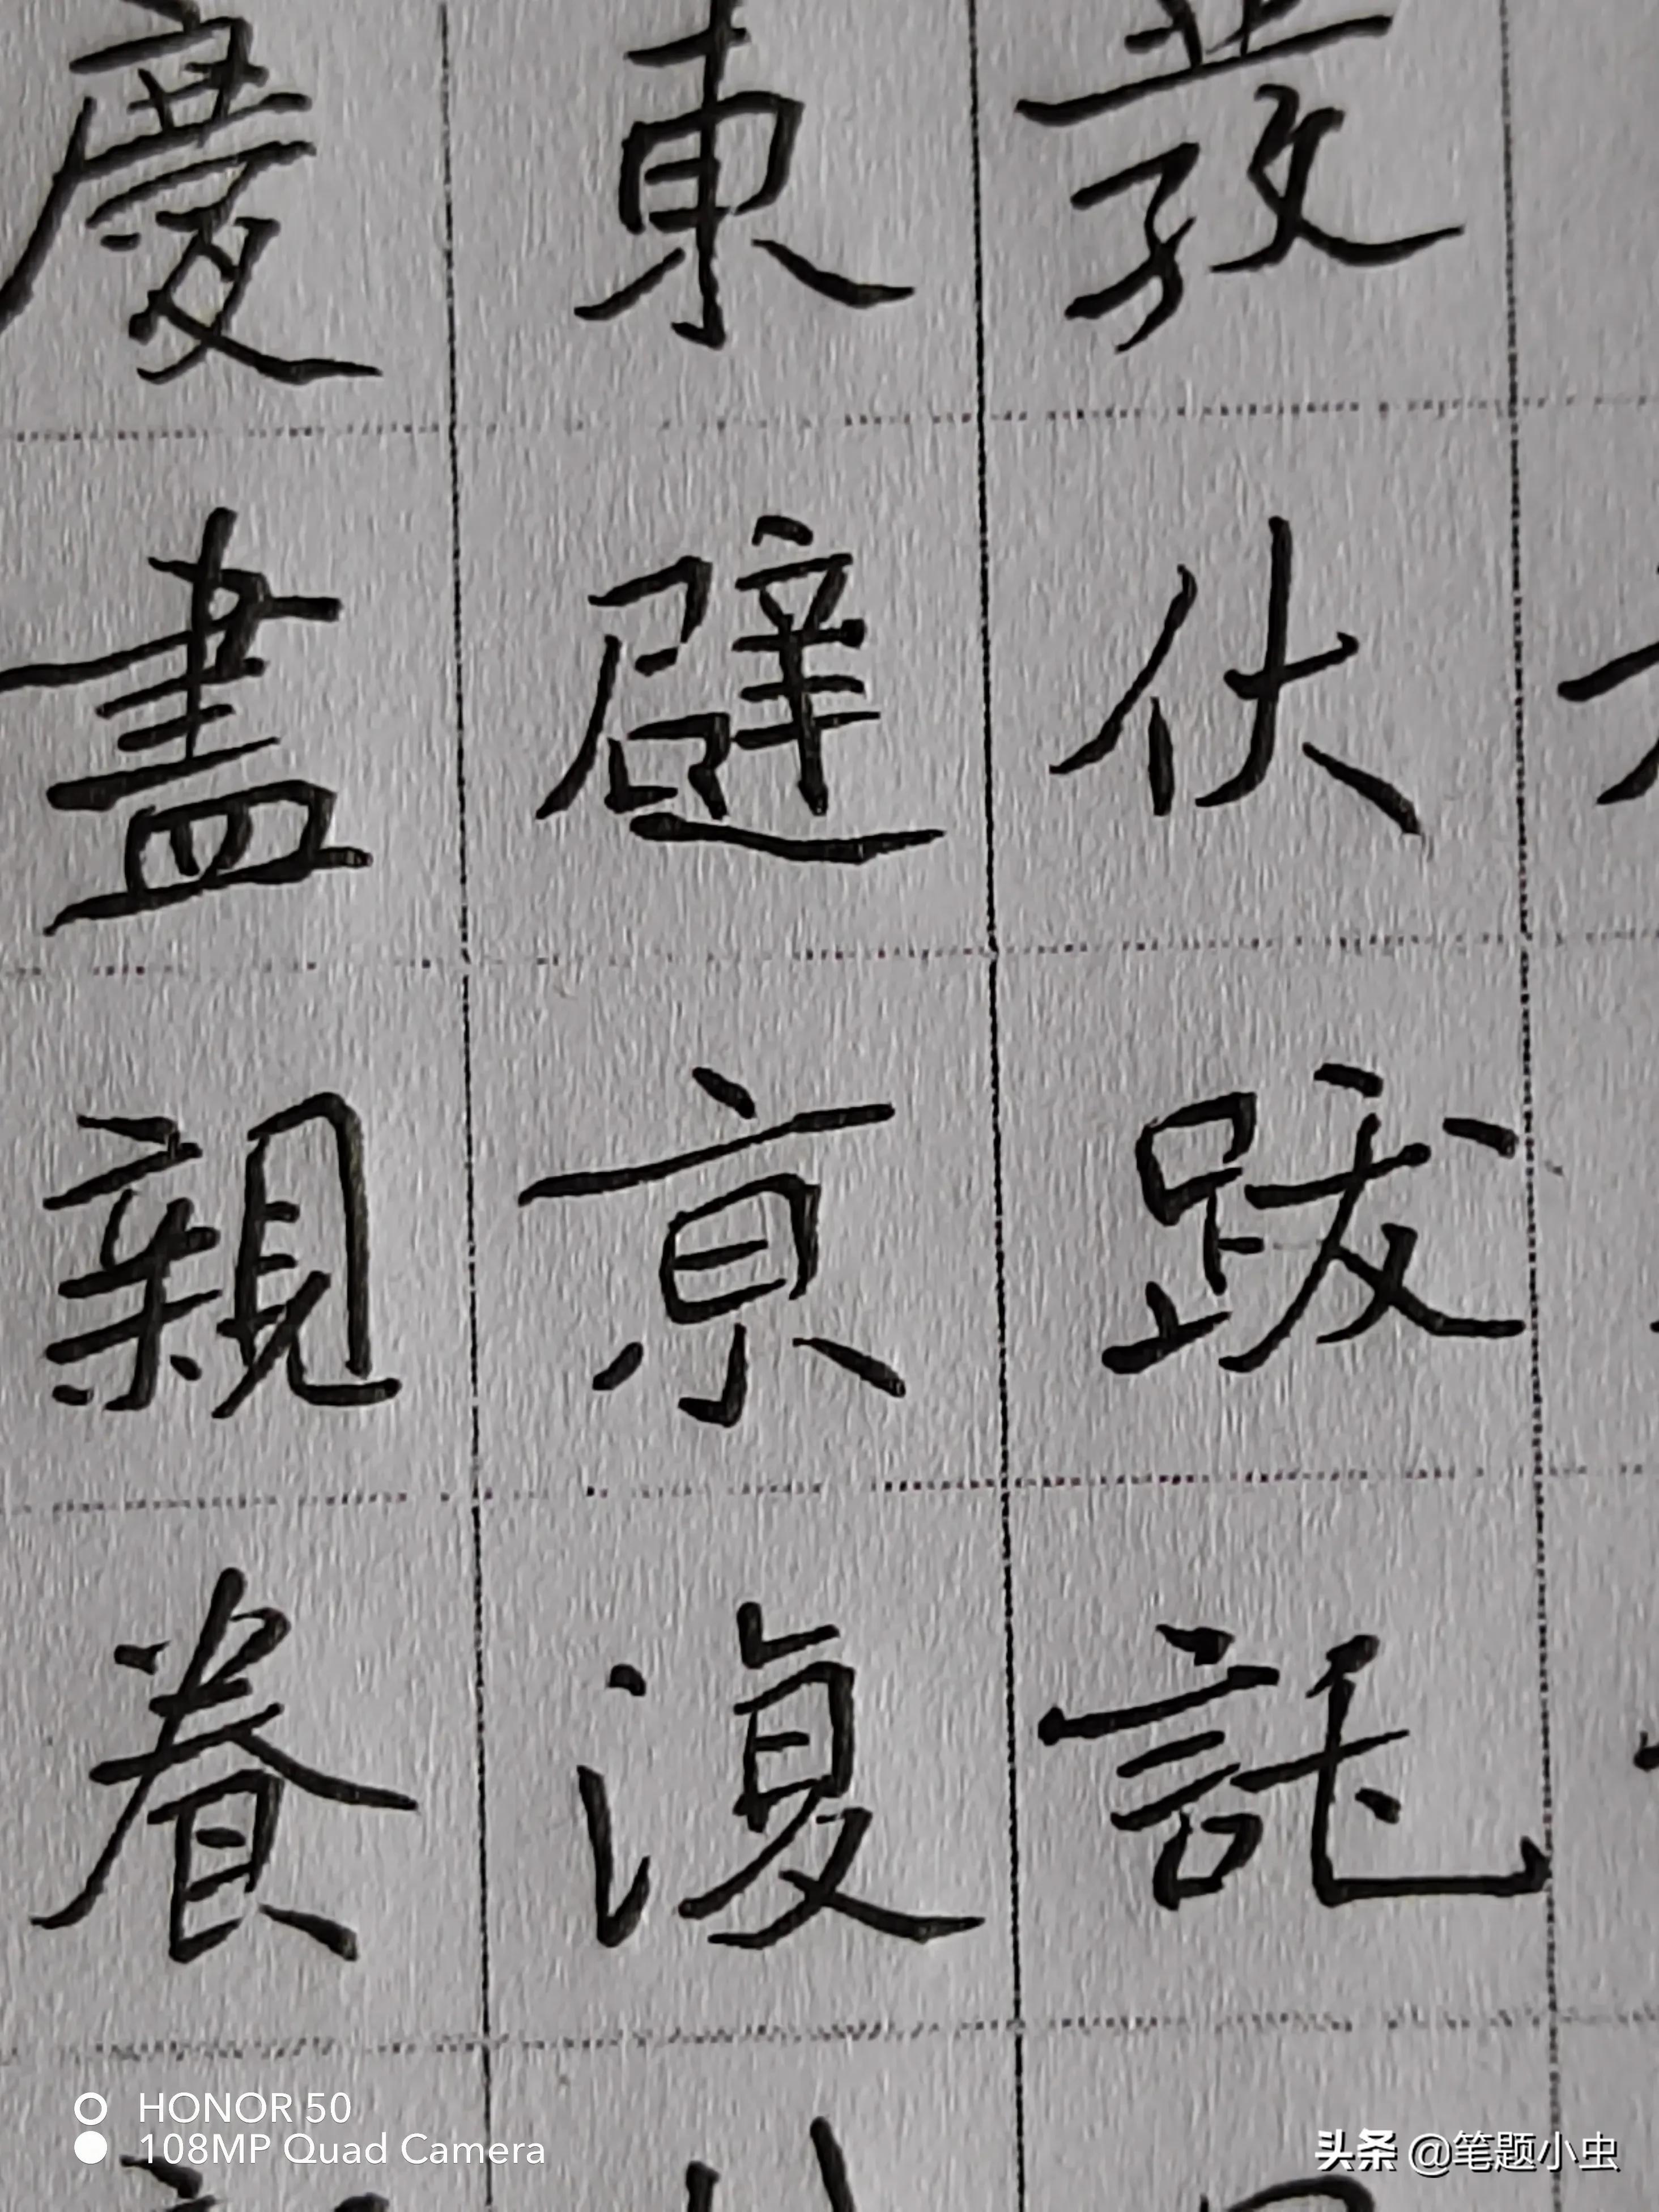 發伏跋託
東京復
慶盡親眷
HONOR 50
108MP Quad Camera
头条 @笔题小虫